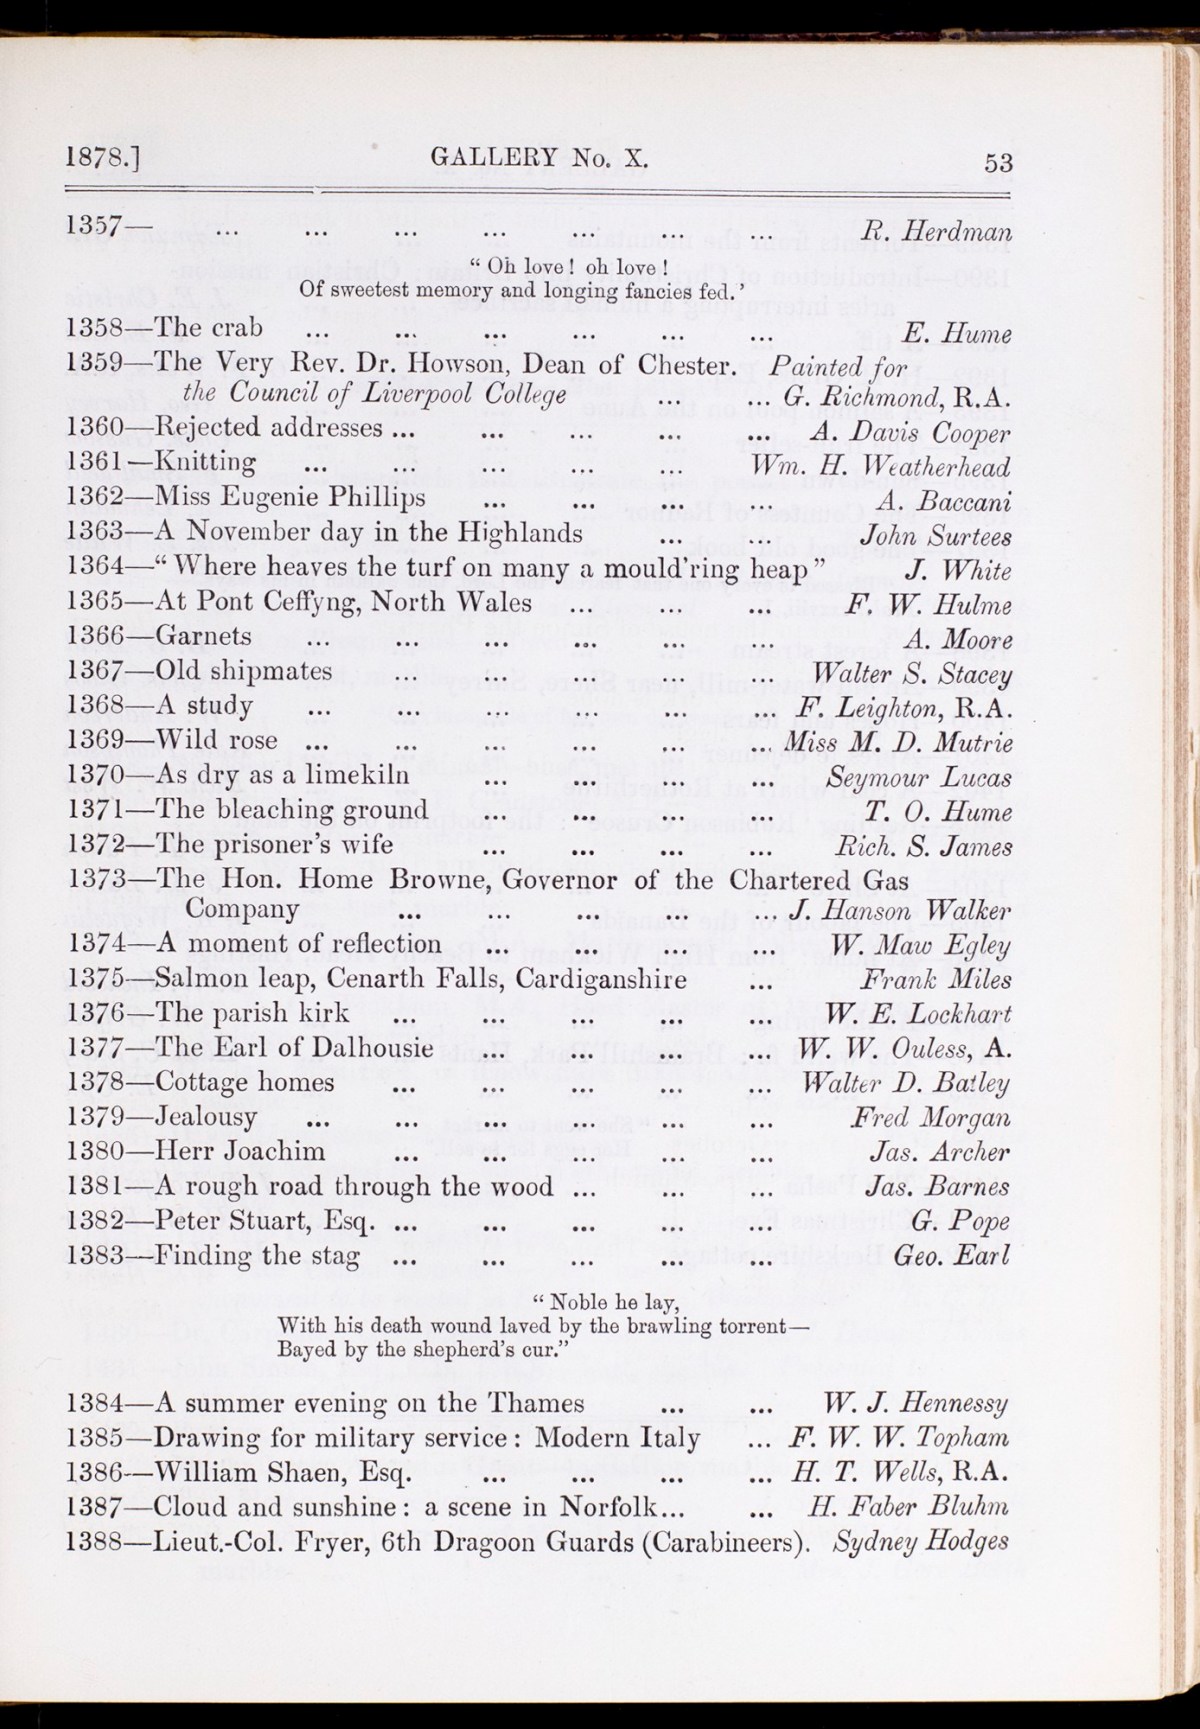 1878.] GALLERY No. X. 53
1357— ... ... ... ... ... ... ... R. Herdman
“ Oh love ! oh love !
Of sweetest memory and longing fancies fed.’
1358—The crab ... ... ... ... ... ... E. Hume
1359—The Very Rev. Dr. Howson, Dean of Chester. Painted for
the Council of Liverpool College ... ... G. Richmond, R.A.
1360—Rejected addresses ... ... ... ... ... A. Davis Cooper
1361—Knitting ... ... ... ... ... Wm. H. Weatherhead
1362—Miss Eugenie Phillips ... ... ... ... A. Baccani
1363—A November day in the Highlands ... ... John Surtees
1364—“ Where heaves the turf on many a mould’ring heap ” J. White
1365—At Pont Ceffyng, North Wales ... ... ... F. W. Hulme
1366—Garnets ... ... ... ... ... ... A. Moore
1367—Old shipmates ... ... ... ... ... Walter S. Stacey
1368—A study ... ... ... ... ... ... F. Leighton, R.A.
1369—Wild rose ... ... ... ... ... ... Miss M. D. Mutrie
1370—As dry as a limekiln ... ... ... ... Seymour Lucas
1371—The bleaching ground ... ... ... ... T. O. Hume
1372—The prisoner’s wife ... ... ... ... Rich. S. James
1373—The Hon. Home Browne, Governor of the Chartered Gas
Company ... ... ... ... ... J. Hanson Walker
1374—A moment of reflection ... ... ... ... W. Maw Egley
1375—Salmon leap, Cenarth Falls, Cardiganshire ... Frank Miles
1376—The parish kirk ... ... ... ... ... W. E. Lockhart
1377—The Earl of Dalhousie ... ... ... ... W. W. Ouless, A.
1378—Cottage homes ... ... ... ... ... Walter D. Batley
1379—Jealousy ... ... ... ... ... ... Fred Morgan
1380—Herr Joachim ... ... ... ... ... Jas. Archer
1381—A rough road through the wood ... ... ... Jas. Barnes
1382—Peter Stuart, Esq. ... ... ... ... ... G. Pope
1383—Finding the stag ... ... ... ... ... Geo. Earl
“ Noble he lay,
With his death wound laved by the brawling torrent—
Bayed by the shepherd’s cur.”
1384—A summer evening on the Thames ... ... W. J. Hennessy
1385—Drawing for military service : Modern Italy ... F. W. W. Topham
1386—William Shaen, Esq. ... ... ... ... H. T. Wells, R.A.
1387—Cloud and sunshine : a scene in Norfolk... ... H. Faber Bluhm
1388—Lieut.-Col. Fryer, 6th Dragoon Guards (Carabineers). Sydney Hodges